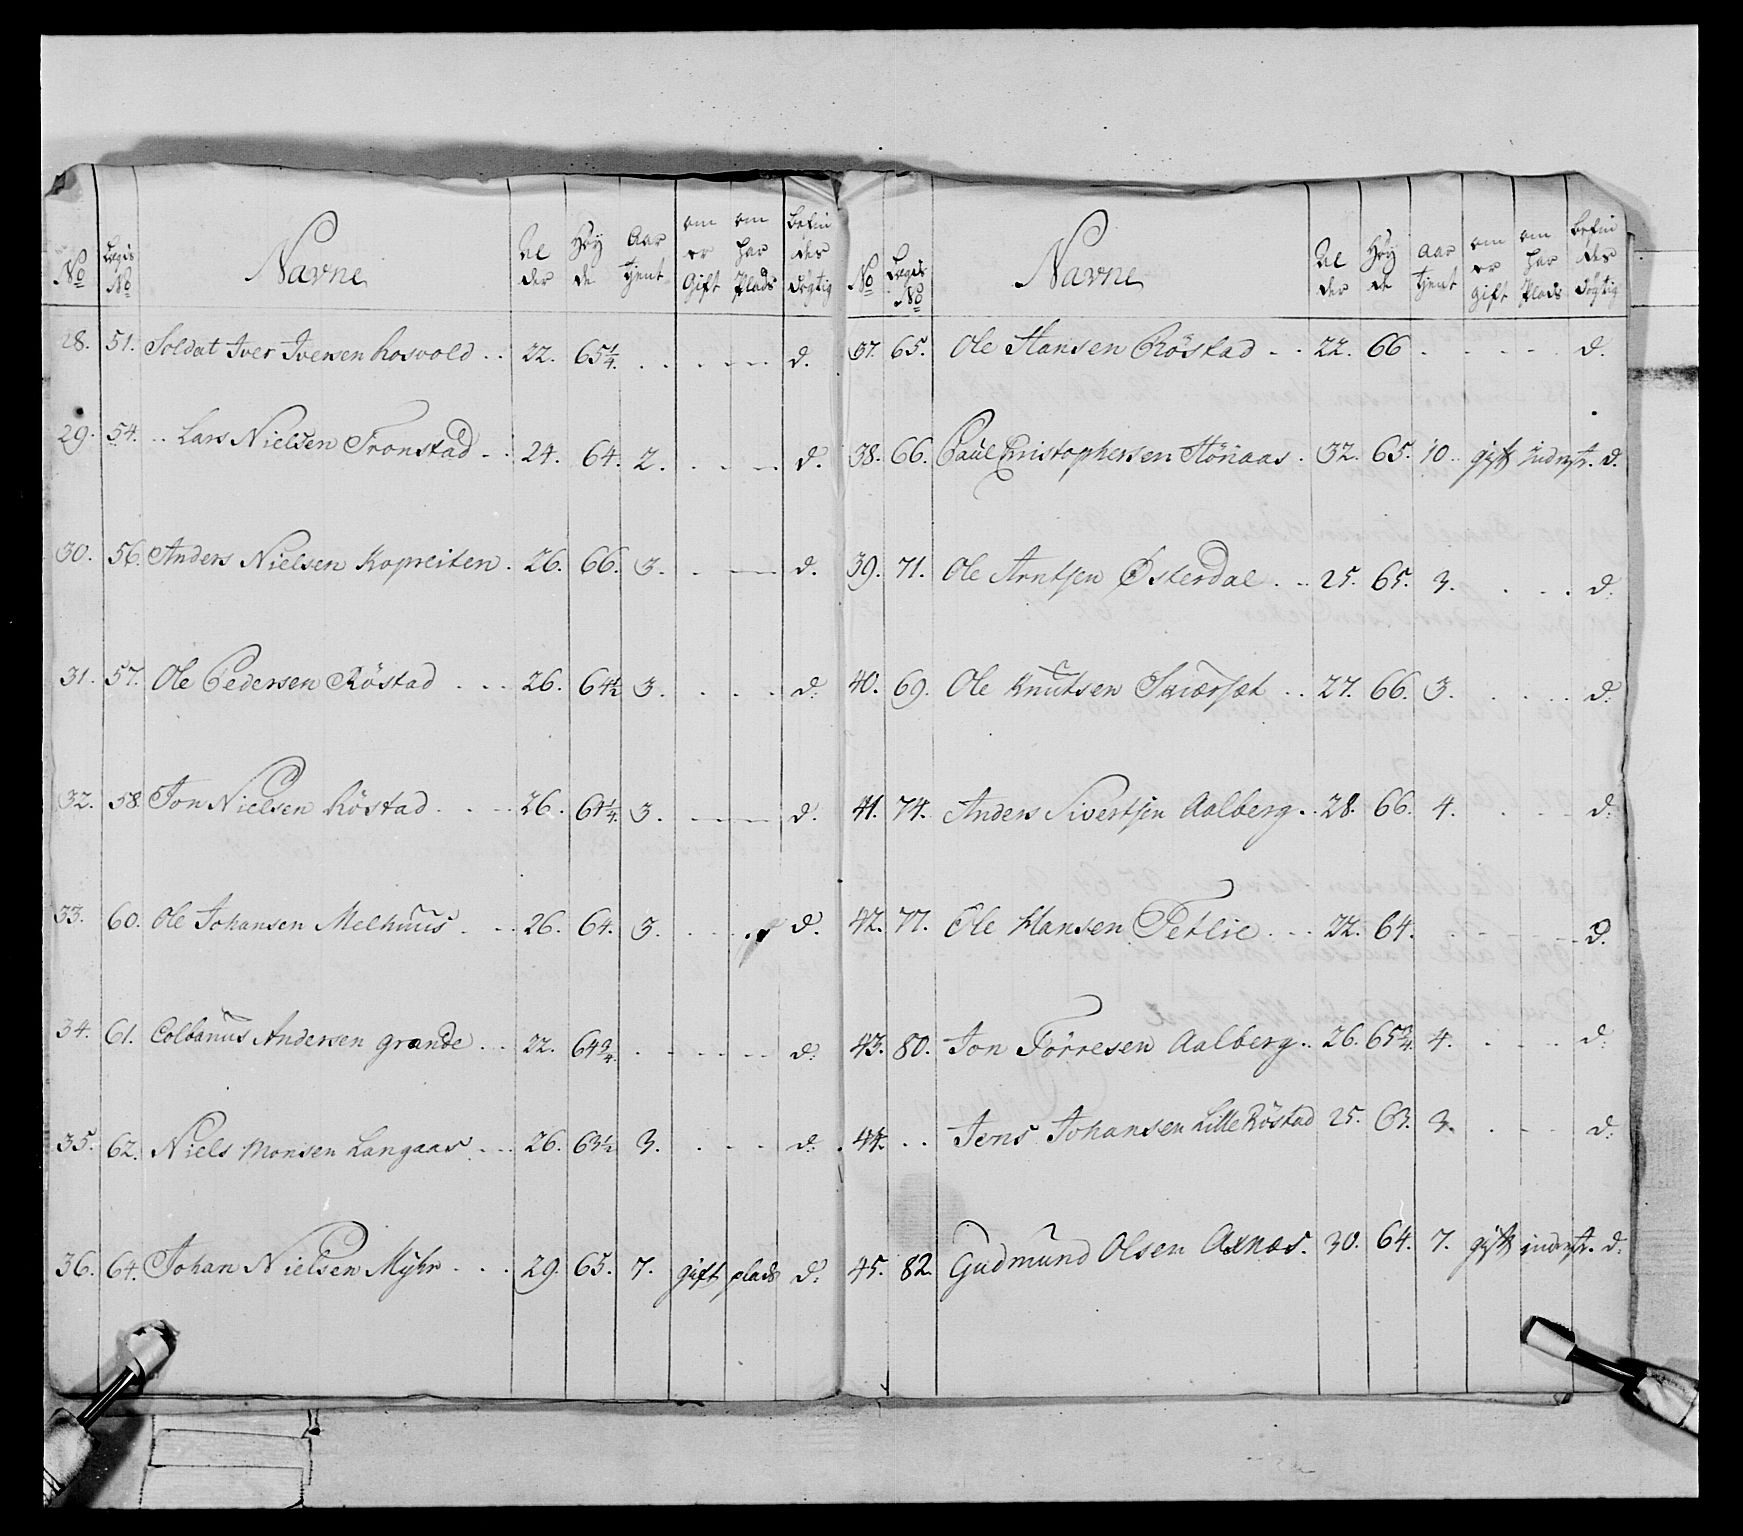 No Lægds No Navne Al der Höy de Aar tjent om er Gift om har Plads befin des dögtig
28. 51. Soldat Iver Iversen Rosvold . . 22. 65 1/4. . . . . d.
29. 54. . . Lars Nielsen Tronstad . . 24. 64. 2. . . . d.
30. 56. Anders Nielsen Kopreiten . 26. 66. 3. . . . d.
31. 57. Ole Pedersen Röstad . . . 26. 64 1/2 3. . . . d.
32. 58. Jon Nielsen Röstad . . . 26. 64 1/4. 3. . . . d.
33. 60. Ole Johansen Melhuus . . . 26. 64. 3. . . . d.
34. 61. Colbanus Andersen Grande . . 22. 64 3/4. . . . . d.
35. 62. Niels Monsen Langaas . . . 26. 63 1/2 3. . . . d.
36. 64. Johan Nielsen Myhr . . . 29. 65. 7. gift plads d.
No Lægds No Navne Al der Höy de Aar tjent om er gift om har Plads befin des dögtig
37. 65. Ole Hansen Röstad . . 22. 66 . . . . d.
38. 66. Paul Christophersen Stönaas . 32. 65. 10. gift inderst. d.
39. 71. Ole Arntsen Østerdal . . 25. 65. 3. . . . d.
40. 69. Ole Knutsen Skiærset . . 27. 66. 3. . . . d.
41. 74. Anders Sivertsen Aalberg . . 28. 66. 4. . . . d.
42. 77. Ole Hansen Tetlie . . . 22. 64. . . . . d.
43. 80. Jon Törresen Aalberg . . 26. 65 3/4. 4. . . . d.
44. . . Jens Johansen Lille Röstad 25. 63. 3. . . . d.
45. 82. Gudmund Olsen Axnæs. 30. 64. 7. gift inderst. d.